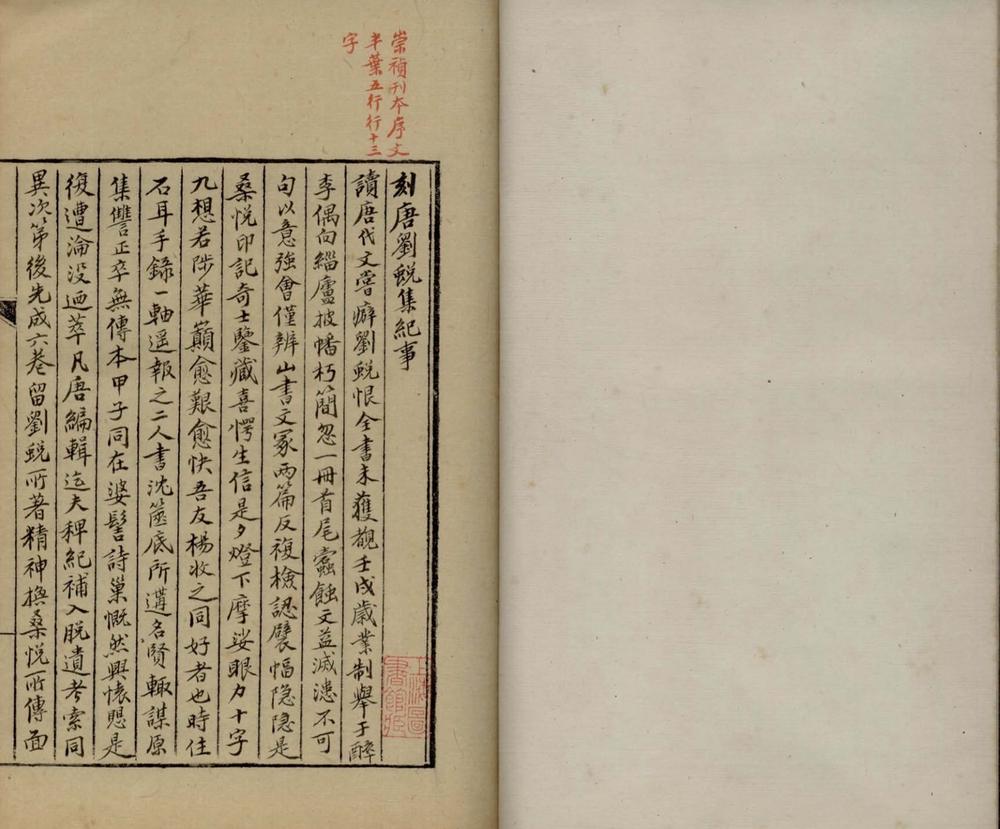 崇禎刊本序文
半葉五行行十三
字
刻唐劉蛻集紀事
讀唐代文嘗癖劉蛻恨全書未獲覩壬戌歲業制舉于醉
李偶向緇廬披幡朽簡忽一冊首尾蠹蝕文益滅漶不可
句以意強會僅辨山書文冢兩篇反複檢認襞幅隐隐是
桑悅印記奇士鑒藏喜愕生信是夕燈下摩娑眼力十字
九想若陟華巔愈艱愈快吾友楊牧之同好者也時住
石耳手錄一軸遥報之二人書沈篋底所遘名賢輙謀原
集讐正卒無傳本甲子同在婆髻詩巢慨然興懐懸是
復遭淪没迺萃凡唐編輯迄夫稗紀補入脱遺考索同
異次第後先成六卷留劉蛻所著精神橅桑悅所傳面
上海圖
書館藏